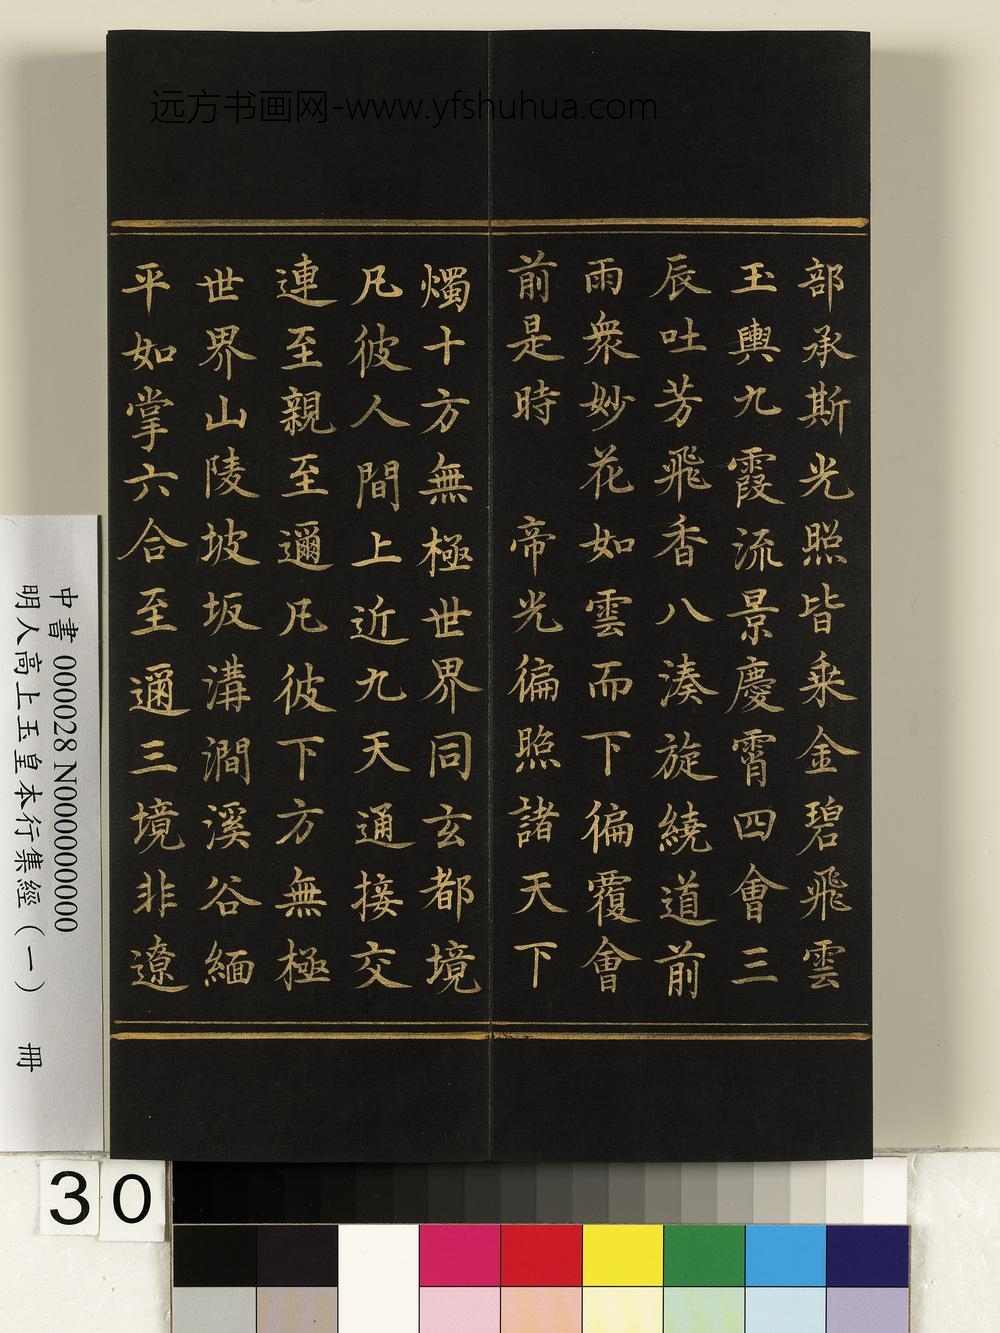 远方书画网-www.yfshuhua.com
部承斯光照皆乘金碧飛雲
玉輿九霞流景慶霄四會三
辰吐芳飛香八湊旋繞道前
雨衆妙花如雲而下徧覆會
前是時 帝光徧照諸天下
燭十方無極世界同玄都境
凡彼人間上近九天通接交
連至親至邇凡彼下方無極
世界山陵坡坂溝澗溪谷緬
平如掌六合至通三境非遼
中書 000028 N000000000
明人高上玉皇本行集經（一） 冊
30